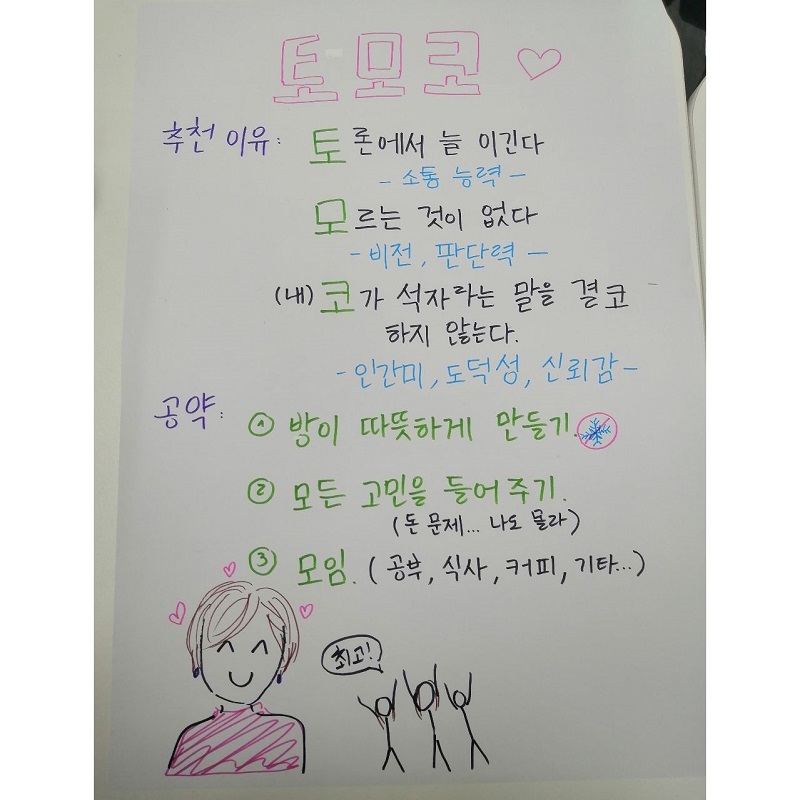 토모코 ♡
추천 이유: 토론에서 늘 이긴다
- 소통 능력 -
모르는 것이 없다
- 비전, 판단력 -
(내) 코가 석자라는 말을 결코
하지 않는다.
- 인간미, 도덕성, 신뢰감 -
공약: ① 방이 따뜻하게 만들기.
② 모든 고민을 들어 주기.
(돈 문제... 나도 몰라)
③ 모임. (공부, 식사, 커피, 기타...)
최고!